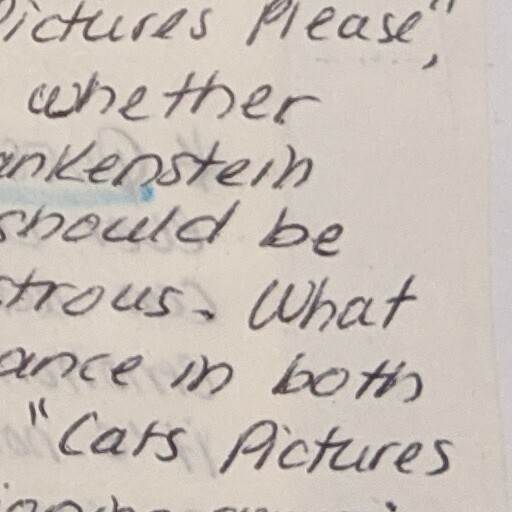 Pictures Please",
whether
ankenstein
should be
trous. What
ance in both
"Cats Pictures